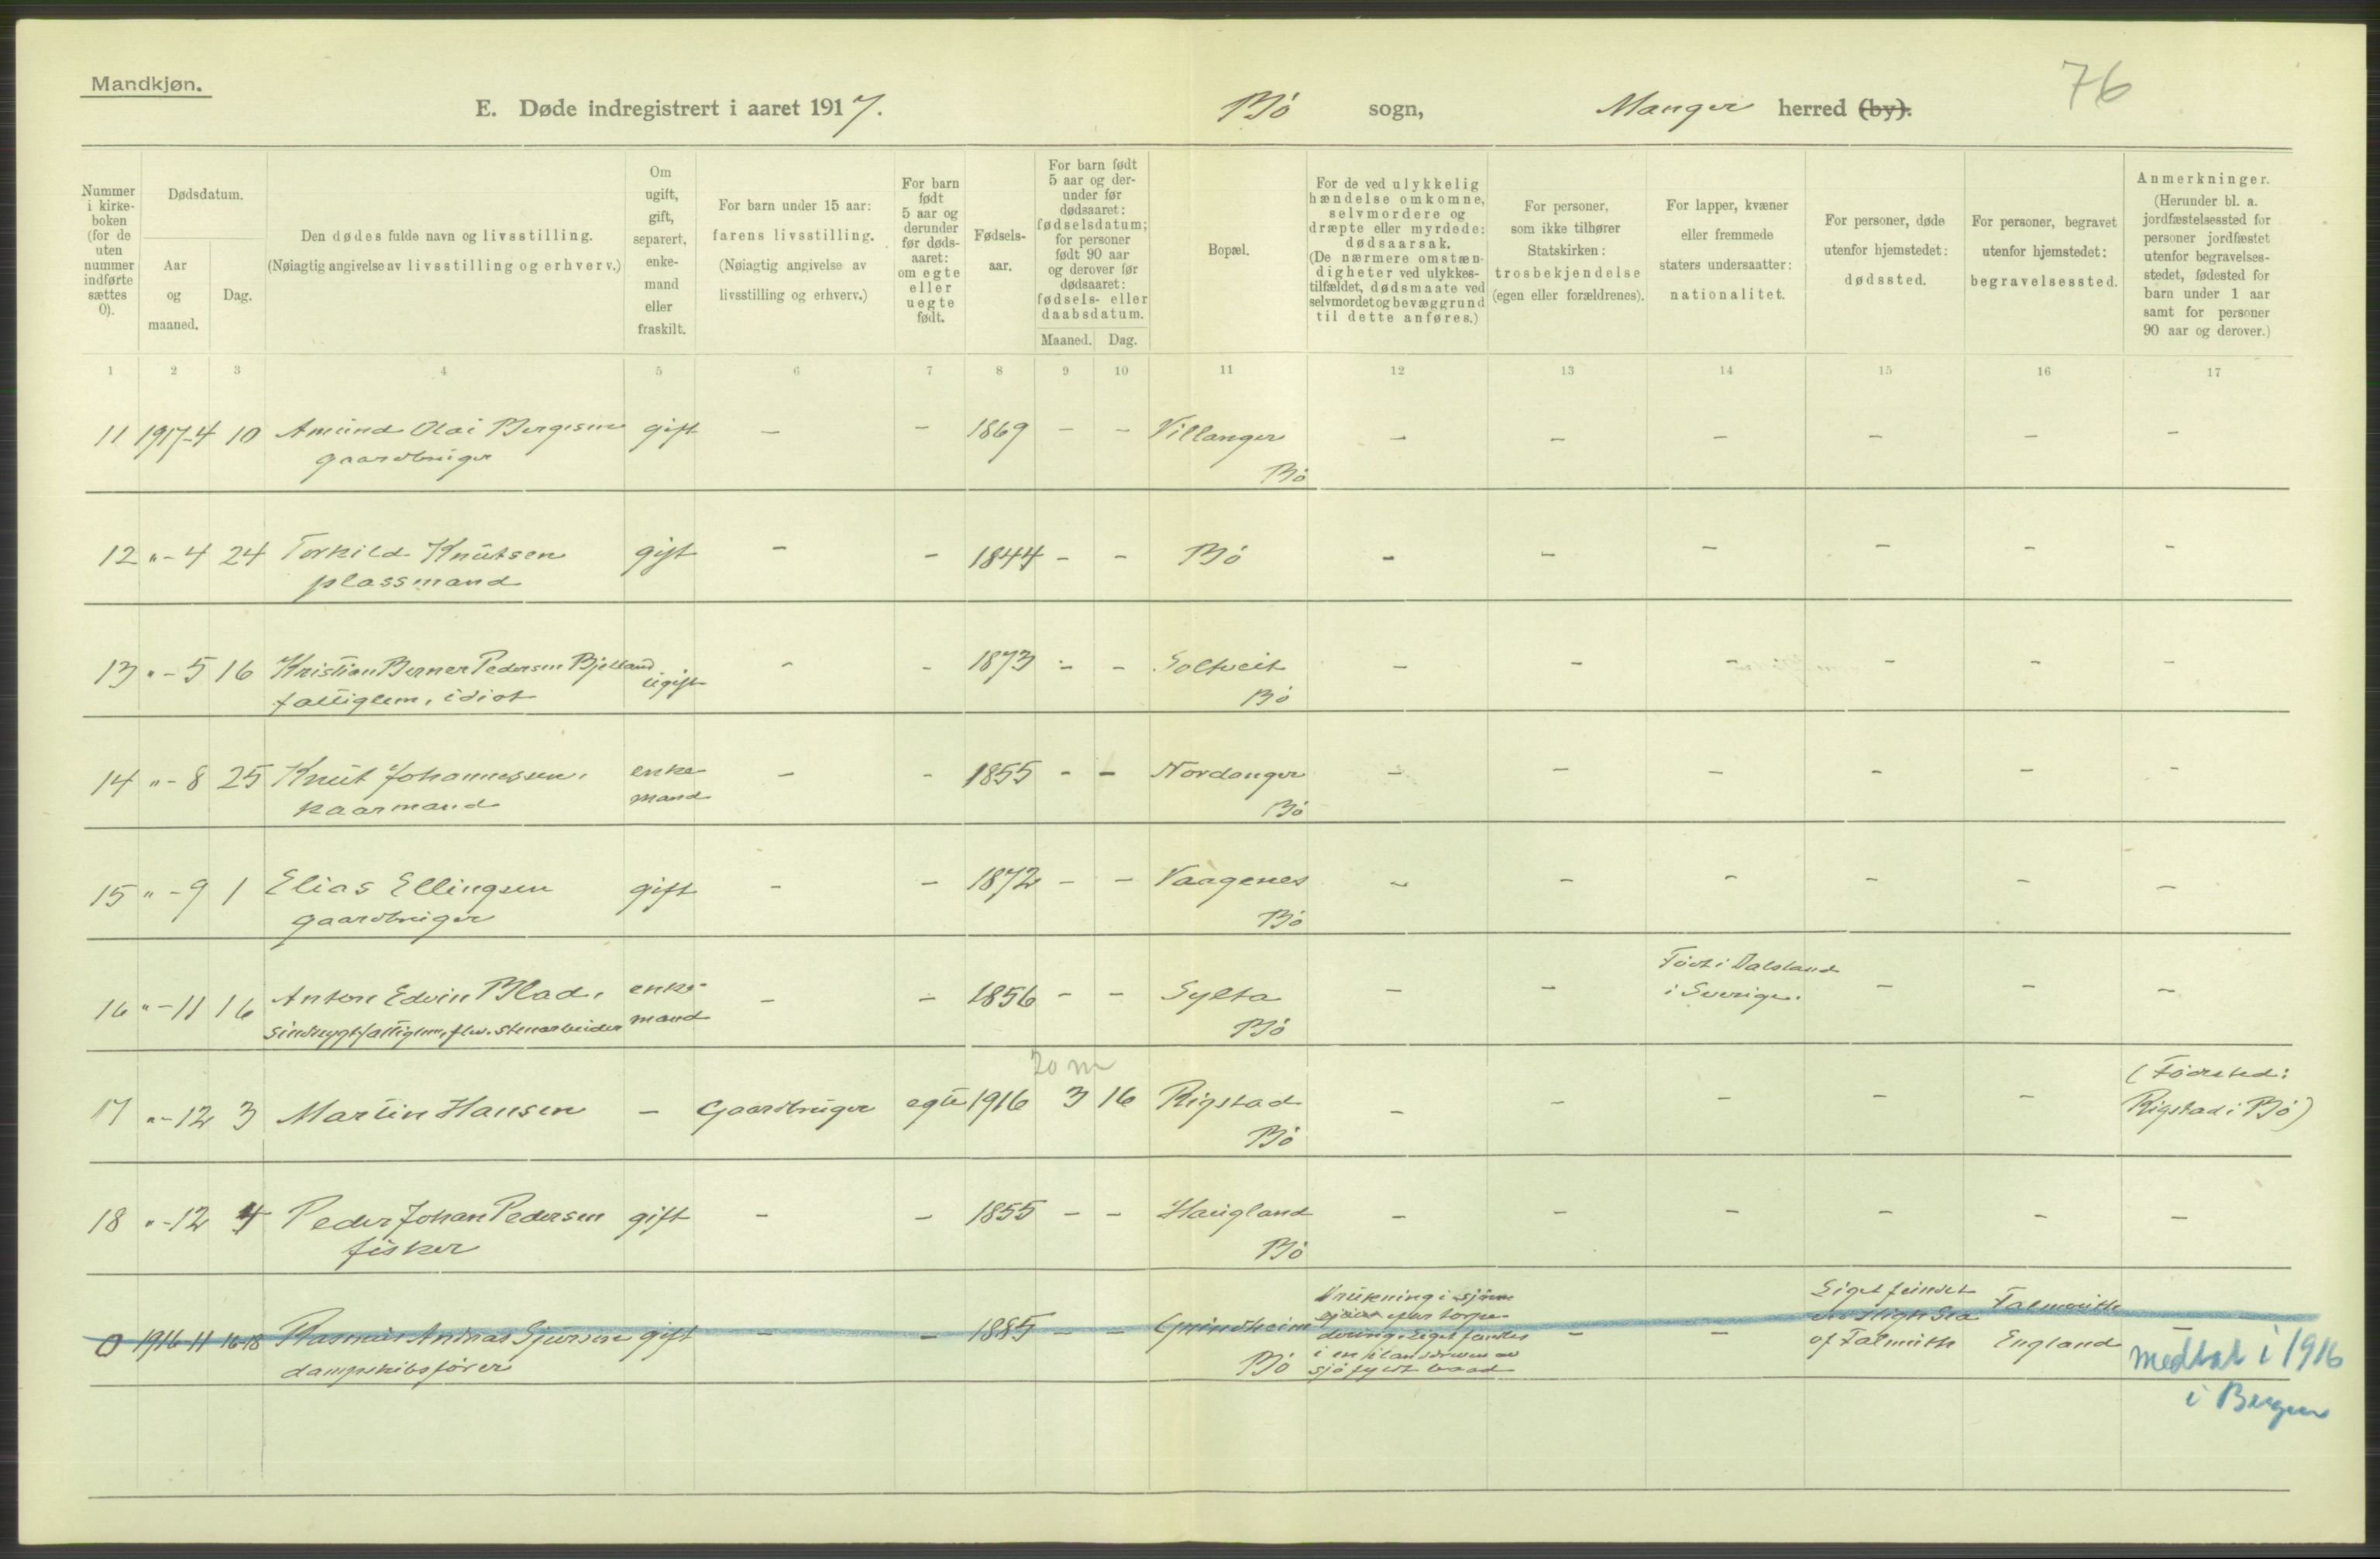 Mandkjøn.
76
E. Døde indregistrert i aaret 1917. Bø sogn, Manger herred (by).
Nummer i kirkeboken (for de uten nummer indførte sættes 0).
Dødsdatum.
Aar og maaned.
Dag.
Den dødes fulde navn og livsstilling.
(Nøiagtig angivelse av livsstilling og erhverv.)
Om ugift, gift, separert, enkemand eller fraskilt.
For barn under 15 aar: farens livsstilling. (Nøiagtig angivelse av livsstilling og erhverv.)
For barn født 5 aar og derunder før dødsaaret: om egte eller uegte født.
Fødselsaar.
For barn født 5 aar og derunder før dødsaaret: fødselsdatum; for personer født 90 aar og derover før dødsaaret: fødsels- eller daabsdatum.
Maaned. Dag.
Bopæl.
For de ved ulykkelig hændelse omkomne, selvmordere og dræpte eller myrdede: dødsaarsak. (De nærmere omstændigheter ved ulykkestilfældet, dødsmaate ved selvmordet og bevæggrund til dette anføres.)
For personer, som ikke tilhører Statskirken: trosbekjendelse (egen eller forældrenes).
For lapper, kvæner eller fremmede staters undersaatter: nationalitet.
For personer, døde utenfor hjemstedet: dødssted.
For personer, begravet utenfor hjemstedet: begravelsessted.
Anmerkninger. (Herunder bl. a. jordfæstelsessted for personer jordfæstet utenfor begravelsesstedet, fødested for barn under 1 aar samt for personer 90 aar og derover.)
1 2 3 4 5 6 7 8 9 10 11 12 13 14 15 16 17
11 1917-4 10 Amund Olai Bergesen gift - - 1869 - - Villanger - - - - - -
gaardbruger Bø
12 "-4 24 Torkild Knutsen gift - - 1844 - - Bø - - - - - -
plassmand
13 "-5 16 Kristian Berner Pedersen Bjelland ugift - - 1873 - - Soltveit - - - - - -
fattiglem, idiot Bø
14 "-8 25 Knut Johannessen. enke - - 1855 - - Nordanger - - - - - -
kaarmand mand Bø
15 "-9 1 Elias Ellingsen gift - - 1872 - - Vaagenes - - - - - -
gaardbruger Bø
16 "-11 16 Anton Edvin Blad. enke- - - 1856 - - Sylta - - Født i Dalsland - - -
sindssygt fattiglem, flw. stenarbeider mand Bø i Sverige.
20 m
17 "-12 3 Martin Hansen - Gaardbruger egte 1916 3 16 Rigstad - - - - - (Fødested:
Bø Rigstad i Bø)
18 "-12 4 Peder Johan Pedersen gift - - 1855 - - Haugland - - - - - -
fisker Bø
0 1916-11 16-18 Rasmus Andreas Sjursen gift - - 1885 - - Grindheim - - -
dampskibsfører Bø
Drukning i sjøen
efter torpedering. Liget fandtes
i en ilanddreven av
sjø fyldt baad
Liget fundet
on High Sea
of Falmuth
Falmouth
England
medtat i 1916
i Bergen